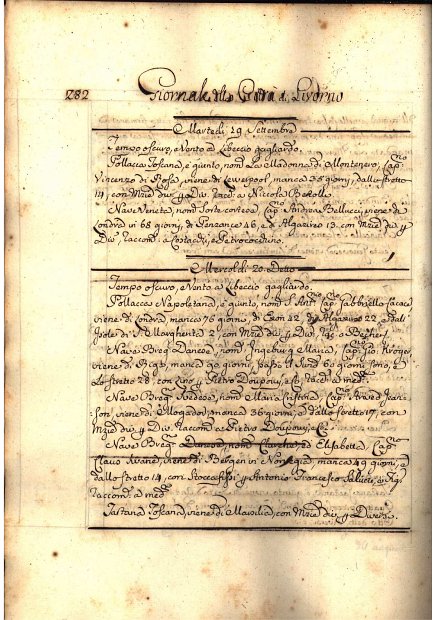 282 Giornale della Città di Livorno
Martedì 19 Settembre
Tempo oscuro, e Vento a Libeccio gagliardo.
Pollacca Toscana, è giunto, nomª La Madonna di Montenero, Capno
Vincenzo di Rosa, viene di Leverpool, manca 38 giorni, dallo stretto
14, con Mrzie div. p Div. racc. a Niccola Berollo.
Nave Veneta, nomª Sorte cortesa, Capno Andrea Bellucci, viene di
Londra in 68 giorni, di Penzance 46, e di Algazires 13 con Mrzie div. p
Div. raccom. a Costachi, e Petrococchino.
Mercoldì 20. Detto
Tempo oscuro, e Vento a Libeccio gagliardo.
Pollacca Napoletana, è giunto, nomª S. Ant. Capno Gabbriello Cacace
viene di Londra manca 76 giorni, di Exon 42, di Algazires 22, e dall'
Isole di S. Margherita 2, con Mrzie div. p Div. a
Nave Brig. Danese, nomª Ingebury Maria, Capno Gio. Kroyer,
viene di manca 90 giorni, passò il Sund 60 giorni sono, e
Lo stretto 28, con Lino p Pietro Doupouy, e Co. racc. a med.
Nave Brig. Svedese, nomª Maria Cristina, Capno Arved Joan
son, viene di Mogador, manca 36 giorni, e dallo stretto 17, con
Mrzie div. p Div. raccom. a Pietro Doupouy, e C.
Nave Brig. Danese, nomª ed Elisabetta, Capno
Claus viene di Bergen in Norvegia, manca 49 giorni, e
dallo stretto 14, con Stoccafissi p Antonio Francesco Salucci, e Fig.
raccom. a med.
Tartana Toscana, viene di Marsilia, con Mrzie div. p Diversi.